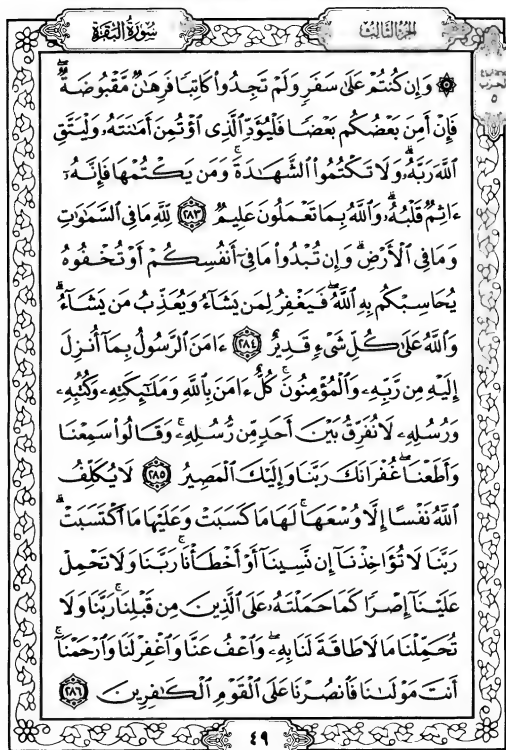 الجزء الثالث
سورة البقرة
۞ وَإِن كُنتُمْ عَلَىٰ سَفَرٍ وَلَمْ تَجِدُوا۟ كَاتِبًا فَرِهَـٰنٌ مَّقْبُوضَةٌ ۖ
فَإِنْ أَمِنَ بَعْضُكُم بَعْضًا فَلْيُؤَدِّ ٱلَّذِى ٱؤْتُمِنَ أَمَـٰنَتَهُۥ وَلْيَتَّقِ
ٱللَّهَ رَبَّهُۥ ۗ وَلَا تَكْتُمُوا۟ ٱلشَّهَـٰدَةَ ۚ وَمَن يَكْتُمْهَا فَإِنَّهُۥٓ
ءَاثِمٌ قَلْبُهُۥ ۗ وَٱللَّهُ بِمَا تَعْمَلُونَ عَلِيمٌ ٢٨٣ لِّلَّهِ مَا فِى ٱلسَّمَـٰوَٰتِ
وَمَا فِى ٱلْأَرْضِ ۗ وَإِن تُبْدُوا۟ مَا فِىٓ أَنفُسِكُمْ أَوْ تُخْفُوهُ
يُحَاسِبْكُم بِهِ ٱللَّهُ ۖ فَيَغْفِرُ لِمَن يَشَآءُ وَيُعَذِّبُ مَن يَشَآءُ ۗ
وَٱللَّهُ عَلَىٰ كُلِّ شَىْءٍ قَدِيرٌ ٢٨٤ ءَامَنَ ٱلرَّسُولُ بِمَآ أُنزِلَ
إِلَيْهِ مِن رَّبِّهِۦ وَٱلْمُؤْمِنُونَ ۚ كُلٌّ ءَامَنَ بِٱللَّهِ وَمَلَـٰٓئِكَتِهِۦ وَكُتُبِهِۦ
وَرُسُلِهِۦ لَا نُفَرِّقُ بَيْنَ أَحَدٍ مِّن رُّسُلِهِۦ ۚ وَقَالُوا۟ سَمِعْنَا
وَأَطَعْنَا ۖ غُفْرَانَكَ رَبَّنَا وَإِلَيْكَ ٱلْمَصِيرُ ٢٨٥ لَا يُكَلِّفُ
ٱللَّهُ نَفْسًا إِلَّا وُسْعَهَا ۚ لَهَا مَا كَسَبَتْ وَعَلَيْهَا مَا ٱكْتَسَبَتْ ۗ
رَبَّنَا لَا تُؤَاخِذْنَآ إِن نَّسِينَآ أَوْ أَخْطَأْنَا ۚ رَبَّنَا وَلَا تَحْمِلْ
عَلَيْنَآ إِصْرًا كَمَا حَمَلْتَهُۥ عَلَى ٱلَّذِينَ مِن قَبْلِنَا ۚ رَبَّنَا وَلَا
تُحَمِّلْنَا مَا لَا طَاقَةَ لَنَا بِهِۦ ۖ وَٱعْفُ عَنَّا وَٱغْفِرْ لَنَا وَٱرْحَمْنَآ ۚ
أَنتَ مَوْلَىٰنَا فَٱنصُرْنَا عَلَى ٱلْقَوْمِ ٱلْكَـٰفِرِينَ ٢٨٦
الحزب
٥
٤٩